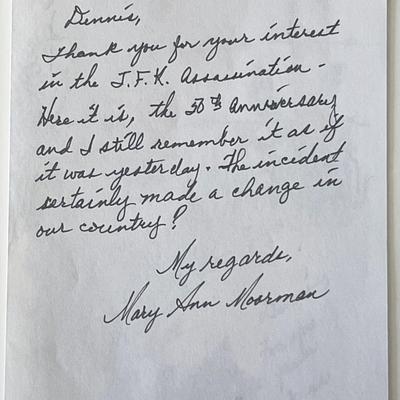 Dennis,
Thank you for your interest
in the J.F.K. Assasination -
Here it is, the 50th anniversary
and I still remember it as if
it was yesterday. The incident
certainly made a change in
our country!
My regards,
Mary Ann Moorman